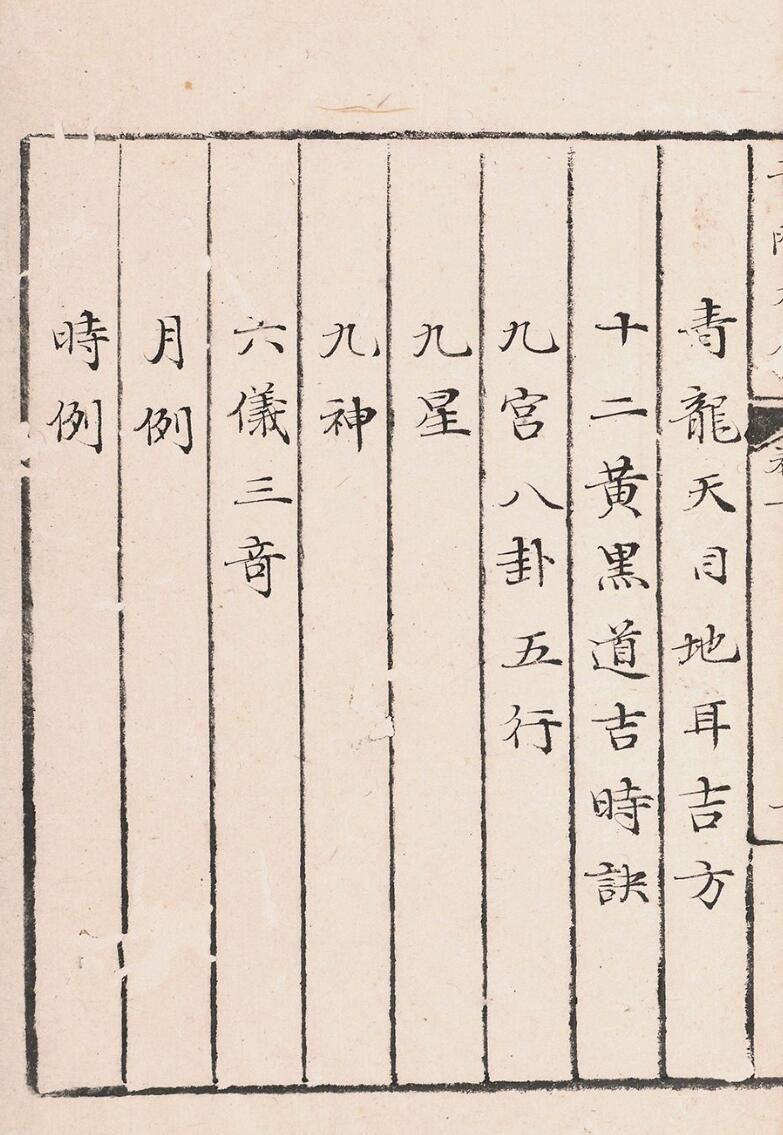 青龍天目地耳吉方
十二黃黑道吉時訣
九宮八卦五行
九星
九神
六儀三竒
月例
時例